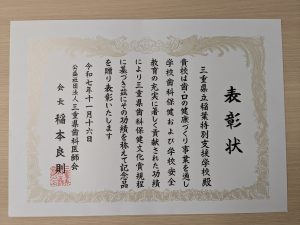 表彰状
三重県立稲葉特別支援学校殿
貴校は歯・口の健康づくり事業を通し
学校歯科保健および学校安全
教育の充実に著しく貢献された功績
により三重県歯科保健文化賞規程
に基づき茲にその功績を称えて記念品
を贈り表彰いたします
令和七年十一月十六日
公益社団法人三重県歯科医師会
会長 稲本良則